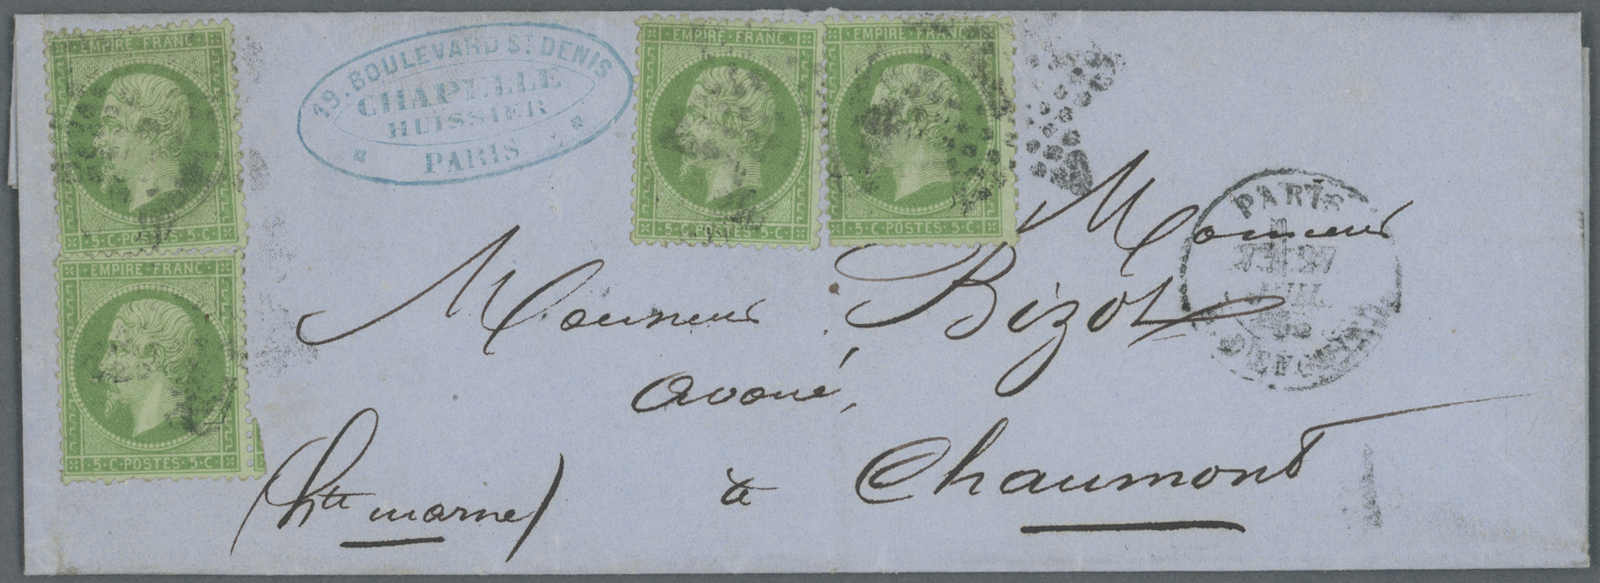 EMPIRE FRANC
5 · C · POSTES · 5 · C
EMPIRE FRANC
5 · C · POSTES · 5 · C
19. BOULEVARD ST DENIS
CHAPELLE
HUISSIER
PARIS
EMPIRE FRANC
5 · C · POSTES · 5 · C
EMPIRE FRANC
5 · C · POSTES · 5 · C
PARIS
D'ENGHIEN
Monsieur
Monsieur Bizot
avoué,
à Chaumont
(hte marne)